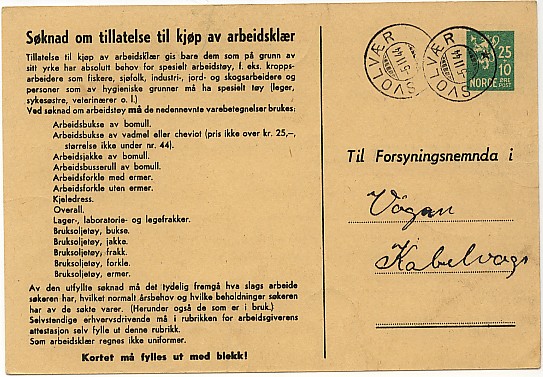 Søknad om tillatelse til kjøp av arbeidsklær
Tillatelse til kjøp av arbeidsklær gis bare dem som på grunn av
sitt yrke har absolutt behov for spesielt arbeidstøy, f. eks. kropps-
arbeidere som fiskere, sjøfolk, industri-, jord- og skogsarbeidere og
personer som av hygieniske grunner må ha spesielt tøy (leger,
sykesøstre, veterinærer o. l.)
Ved søknad om arbeidstøy må de nedennevnte varebetegnelser brukes:
Arbeidsbukse av bomull.
Arbeidsbukse av vadmel eller cheviot (pris ikke over kr. 25,–,
størrelse ikke under nr. 44).
Arbeidsjakke av bomull.
Arbeidsbusserull av bomull.
Arbeidsforkle med ermer.
Arbeidsforkle uten ermer.
Kjeledress.
Overall.
Lager-, laboratorie- og legefrakker.
Bruksoljetøy, bukse.
Bruksoljetøy, jakke.
Bruksoljetøy, frakk.
Bruksoljetøy, forkle.
Bruksoljetøy, ermer.
Av den utfylte søknad må det tydelig fremgå hva slags arbeide
søkeren har, hvilket normalt årsbehov og hvilke beholdninger søkeren
har av de søkte varer. (Herunder også de som er i bruk.)
Selvstendige erhvervsdrivende må i rubrikken for arbeidsgiverens
attestasjon selv fylle ut denne rubrikk.
Som arbeidsklær regnes ikke uniformer.
Kortet må fylles ut med blekk!
SVOLVÆR
-5 11 44
SVOLVÆR
-5 11 44
25
+10
NORGE ØRE
POST
Til Forsyningsnemnda i
Vågan
Kabelvåg